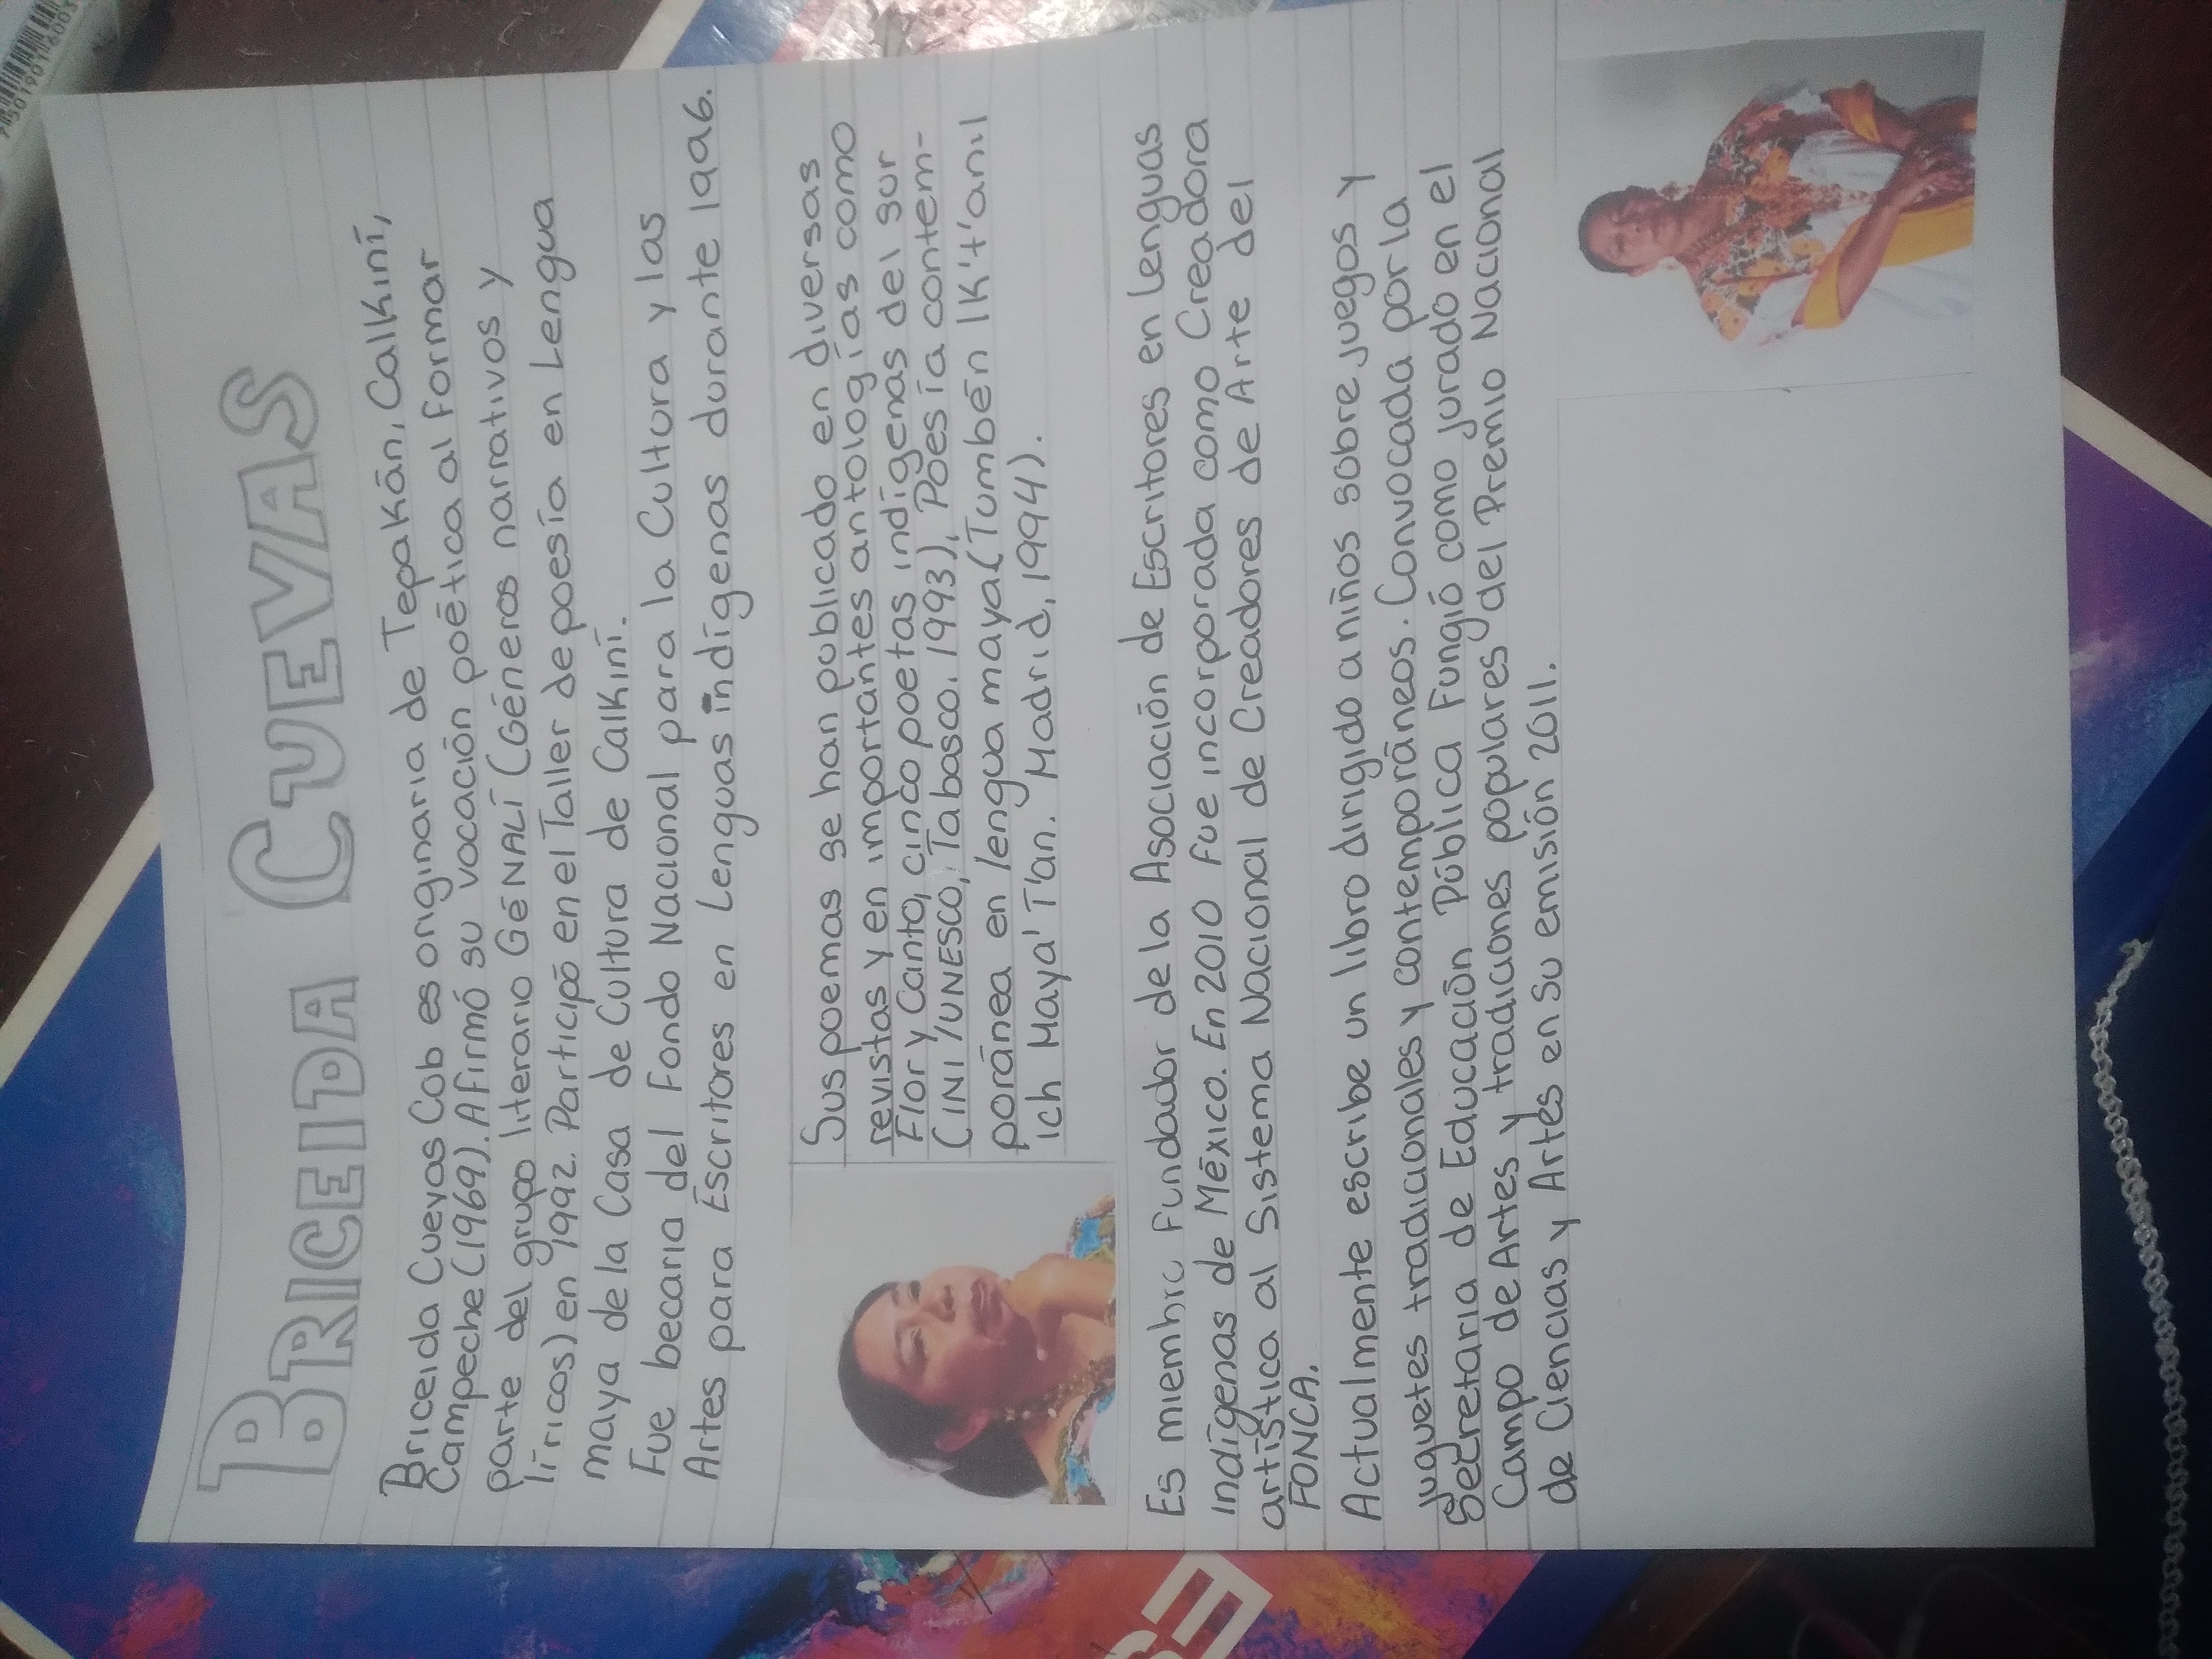 BRICEIDA CUEVAS
Briceida Cuevas Cob es originaria de Tepakán, Calkiní,
Campeche (1969). Afirmó su vocación poética al formar
parte del grupo literario GÉNALÍ (Géneros narrativos y
líricos) en 1992. Participó en el Taller de poesía en Lengua
maya de la Casa de Cultura de Calkiní.
Fue becaria del Fondo Nacional para la Cultura y las
Artes para Escritores en Lenguas indígenas durante 1996.
Sus poemas se han publicado en diversas
revistas y en importantes antologías como
Flor y Canto, cinco poetas indígenas del sur
(INI/UNESCO, Tabasco. 1993), Poesía contem-
poránea en lengua maya (Tumbén Ik't'anil
ich Maya' T'an. Madrid, 1994).
Es miembro Fundador de la Asociación de Escritores en Lenguas
indígenas de México. En 2010 fue incorporada como Creadora
artística al Sistema Nacional de Creadores de Arte del
FONCA.
Actualmente escribe un libro dirigido a niños sobre juegos y
juguetes tradicionales y contemporáneos. Convocada por la
Secretaria de Educación Pública Fungió como jurado en el
Campo de Artes y tradiciones populares del Premio Nacional
de Ciencias y Artes en su emisión 2011.